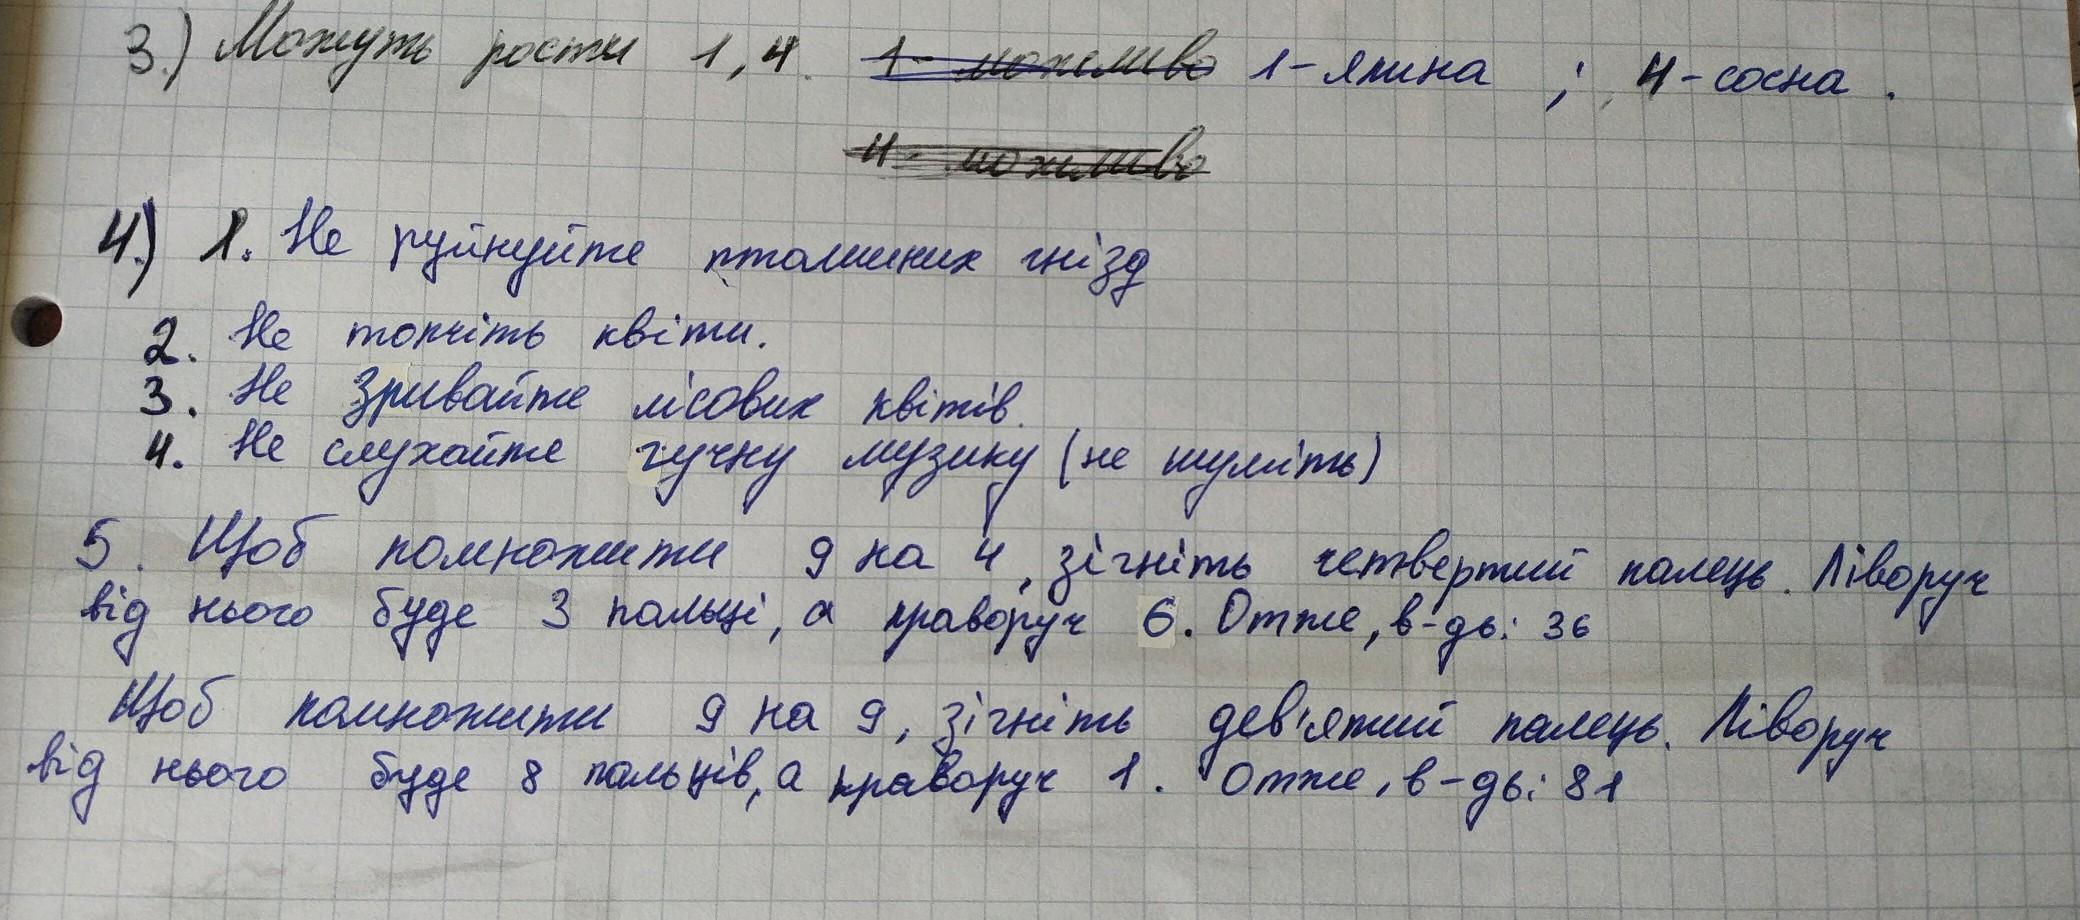 3.) Можуть рости 1, 4. 1 - можливо 1 - ялина ; 4 - сосна .
4 - можливо
4.) 1. Не руйнуйте пташиних гнізд
2. Не топчіть квіти.
3. Не зривайте лісових квітів.
4. Не слухайте гучну музику (не шуміть)
5. Щоб помножити 9 на 4, зігніть четвертий палець. Ліворуч
від нього буде 3 пальці, а праворуч 6. Отже, в-дь: 36
Щоб помножити 9 на 9, зігніть дев'ятий палець. Ліворуч
від нього буде 8 пальців, а праворуч 1. Отже, в-дь: 81